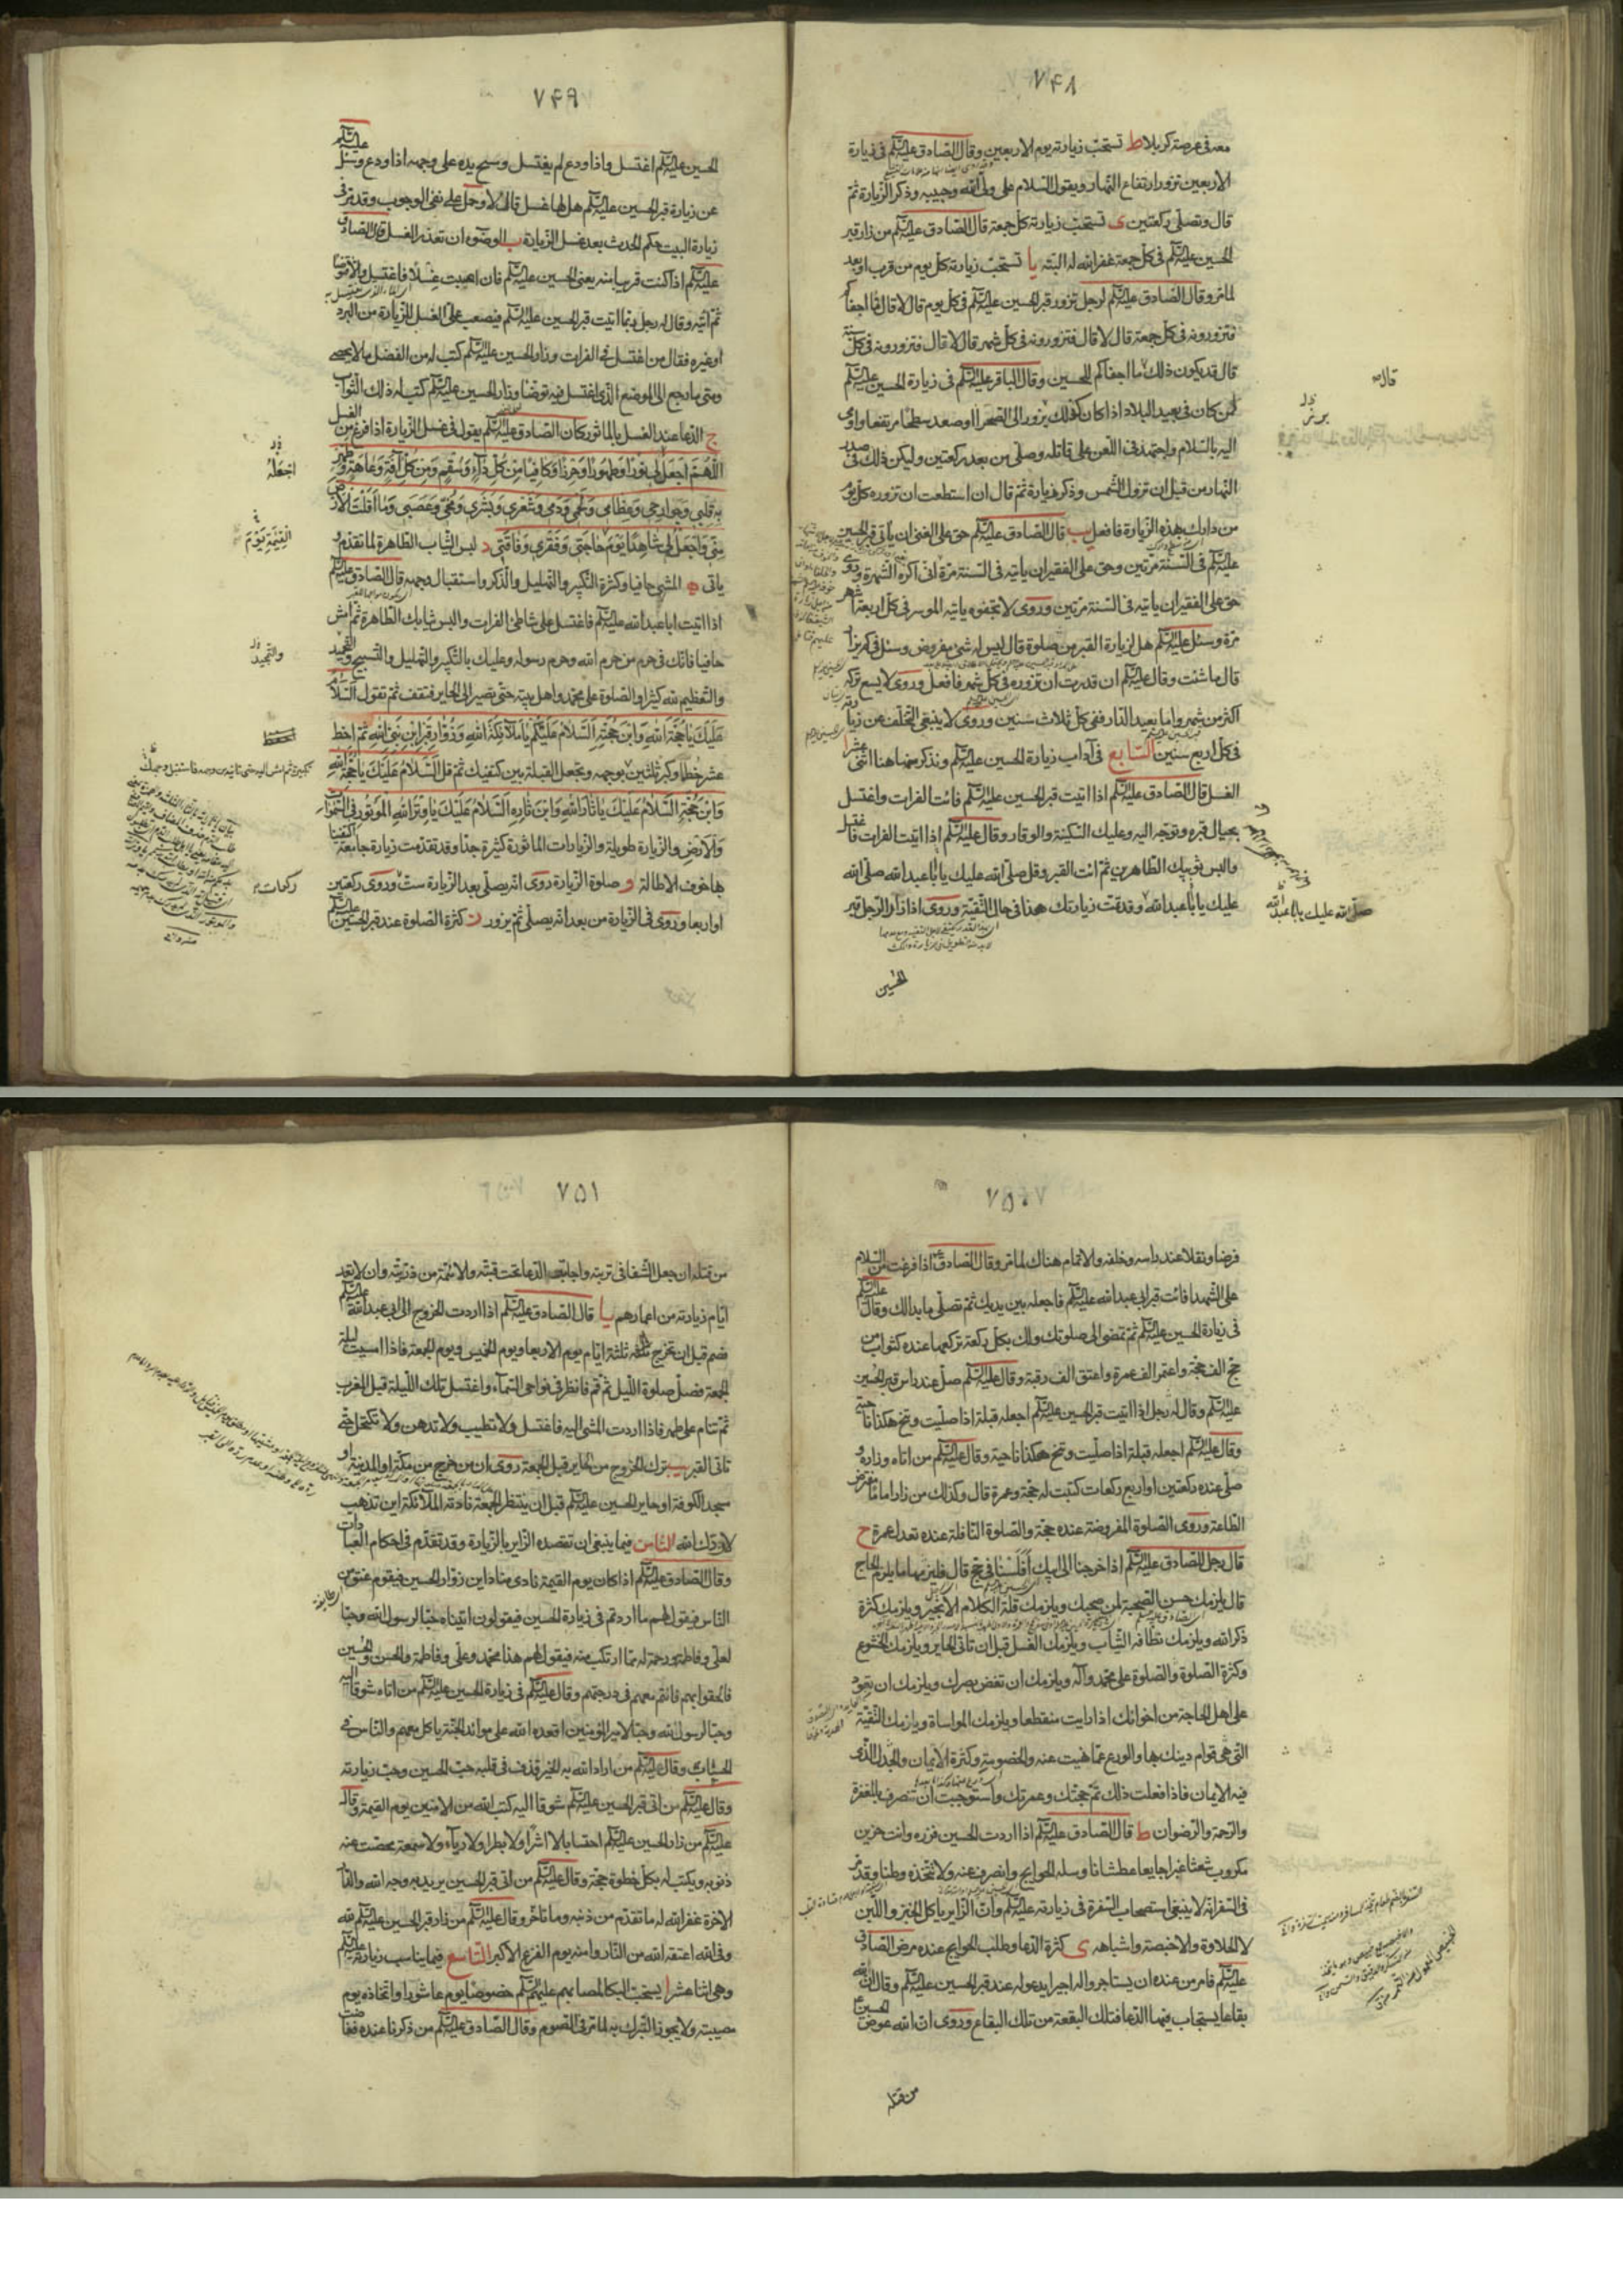 ٧۴٨
معه فی عرصة کربلا ط تستحبّ زیارته یوم الاربعین وقال الصّادق علیه السّلام فی زیارة
الاربعین تزور ارتفاع النّهار ویقول السّلام علی ولیّ الله وحبیبه وذکر الزّیارة ثمّ
قال وتصلّی رکعتین ی تستحبّ زیارته کلّ جمعة قال الصّادق علیه السّلام من زار قبر
الحسین علیه السّلام فی کلّ جمعة غفر الله له البتّه یا تستحبّ زیارته کلّ یوم من قرب او بعد
لما مر وقال الصّادق علیه السّلام لرجل تزور قبر الحسین علیه السّلام فی کلّ یوم قال لا قال فما اجفاکم
فتزورونه فی کلّ جمعة قال لا قال فتزورونه فی کلّ شهر قال لا قال فتزورونه فی کلّ سنة
قال قد یکون ذلک ما اجفاکم للحسین وقال الباقر علیه السّلام فی زیارة الحسین علیه السّلام
لمن کان فی بعید البلاد اذا کان کذلک برز الی الصّحرا او صعد سطحا مرتفعا واومی
الیه بالسّلام واجتهد فی اللّعن علی قاتله وصلّی من بعد رکعتین ولیکن ذلک فی صدر
النّهار من قبل ان تزول الشّمس وذکر زیارة ثمّ قال ان استطعت ان تزوره کلّ یوم
من دارک بهذه الزّیارة فافعل یب قال الصّادق علیه السّلام حق علی الغنی ان یأتی قبر الحسین
علیه السّلام فی السّنة مرّتین وحق علی الفقیر ان یأتیه فی السّنة مرّة انی اکره الشهرة وروی
حق علی الفقیر ان یأتیه فی السّنة مرّتین وروی لا تجفوه یأتیه الموسر فی کلّ اربعة اشهر
مرّة وسئل علیه السّلام هل لزیارة القبر من صلوة قال لیس له شیء مفروض وسئل فی کم یزار
قال ما شئت وقال علیه السّلام ان قدرت ان تزوره فی کلّ شهر فافعل وروی لا یسع ترکه
اکثر من شهر واما بعید الدّار ففی کلّ ثلاث سنین وروی لا ینبغی التّخلّف عن زیارته
فی کلّ اربع سنین السّابع فی آداب زیارة الحسین علیه السّلام ونذکر منها هنا اثنی عشر ا
الغسل قال الصّادق علیه السّلام اذا اتیت قبر الحسین علیه السّلام فائت الفرات واغتسل
بحیال قبره وتوجّه الیه وعلیک السّکینة والوقار وقال علیه السّلام اذا اتیت الفرات فاغتسل
والبس ثوبیک الطّاهرین ثمّ ائت القبر وقل صلّی الله علیک یا ابا عبد الله صلّی الله
علیک یا ابا عبد الله وقد تمّت زیارتک هذا فی حال التّقیّة وروی اذا زار الرّجل قبر
الحسین
صلّی الله علیک یا ابا عبد الله
٧۴٩
الحسین علیه السّلام اغتسل واذا ودع لم یغتسل ومسح یده علی وجهه اذا ودع وسئل علیه السّلام
عن زیارة قبر الحسین علیه السّلام هل لها غسل قال لا وحمل علی نفی الوجوب وقد مرّ فی
زیارة البیت حکم الحدث بعد غسل الزّیارة ب الوضوء ان تعذّر الغسل قال الصّادق
علیه السّلام اذا کنت قریبا منه یعنی الحسین علیه السّلام فان اصبت غسلا فاغتسل والّا فتوضّأ
ثمّ ائته وقال له رجل ربما اتیت قبر الحسین علیه السّلام فیصعب علیّ الغسل للزّیارة من البرد
او غیره فقال من اغتسل فی الفرات وزار الحسین علیه السّلام کتب له من الفضل ما لا یحصی
ومتی ما رجع الی الموضع الّذی اغتسل فیه توضّأ وزار الحسین علیه السّلام کتب له ذلک الثّواب
ج الدّعا عند الغسل بالمأثور کان الصّادق علیه السّلام یقول فی غسل الزّیارة اذا فرغ من الغسل
اَللّٰهُمَّ اجْعَلْ لِی نُورًا وَطَهُورًا وَحِرْزًا وَکَافِیًا مِنْ کُلِّ دَاءٍ وَسُقْمٍ وَمِنْ کُلِّ آفَةٍ وَعَاهَةٍ وَطَهِّرْ
بِهِ قَلْبِی وَجَوَارِحِی وَعِظَامِی وَلَحْمِی وَدَمِی وَشَعْرِی وَبَشَرِی وَمُخِّی وَعَصَبِی وَمَا اَقَلَّتِ الْاَرْضُ
مِنِّی وَاجْعَلْ لِی شَاهِدًا یَوْمَ حَاجَتِی وَفَقْرِی وَفَاقَتِی د لبس الثّیاب الطّاهرة لما تقدّم و
یاتی ه المشی حافیا وکثرة التّکبیر والتّهلیل والذّکر واستقبال وجهه قال الصّادق علیه السّلام
اذا اتیت ابا عبد الله علیه السّلام فاغتسل علی شاطئ الفرات والبس ثیابک الطّاهرة ثمّ امش
حافیا فانّک فی حرم من حرم الله وحرم رسوله وعلیک بالتّکبیر والتّهلیل والتّسبیح والتّحمید
والتّعظیم لله کثیرا والصّلوة علی محمّد واهل بیته حتّی تصیر الی الحایر فتقف ثمّ تقول السّلام
عَلَیْکَ یَا حُجَّةَ اللهِ وَابْنَ حُجَّتِهِ اَلسَّلَامُ عَلَیْکُمْ یَا مَلَائِکَةَ اللهِ وَزُوَّارَ قَبْرِ ابْنِ نَبِیِّ اللهِ ثمّ اخط
عشر خطا وکبّر ثلثین بوجهه وتجعل القبلة بین کتفیک ثمّ قل اَلسَّلَامُ عَلَیْکَ یَا حُجَّةَ اللهِ
وَابْنَ حُجَّتِهِ اَلسَّلَامُ عَلَیْکَ یَا ثَارَ اللهِ وَابْنَ ثَارِهِ اَلسَّلَامُ عَلَیْکَ یَا وِتْرَ اللهِ الْمَوْتُورَ فِی السَّمٰوَاتِ
وَالْاَرْضِ والزّیارة طویلة والزّیارات المأثورة کثیرة جدّا وقد تقدّمت زیارة جامعة اکتفینا
بها خوف الاطالة و صلوة الزّیارة روی انّه یصلّی بعد الزّیارة ستّ وروی رکعتین
او اربعا وروی فی الزّیارة من بعد انّه یصلّی ثمّ یزور ز کثرة الصّلوة عند قبر الحسین علیه السّلام
اجْعَلْهُ
والتّمجید
رکعات
٧۵٠
فرضا ونفلا عند راسه وخلفه والاتمام هناک لما مر وقال الصّادق اذا فرغت من السّلام
علی الشّهدا فائت قبر ابی عبد الله علیه السّلام فاجعله بین یدیک ثمّ تصلّی ما بدا لک وقال علیه السّلام
فی زیارة الحسین علیه السّلام ثمّ تمضی الی صلوتک ولک بکلّ رکعة ترکعها عنده کثواب من
حجّ الف حجّة واعتمر الف عمرة واعتق الف رقبة وقال علیه السّلام صلّ عند راس قبر الحسین
علیه السّلام وقال له رجل اذا اتیت قبر الحسین علیه السّلام اجعله قبلة اذا صلّیت وتنحّ هکذا ناحیة
وقال علیه السّلام اجعله قبلة اذا صلّیت وتنحّ هکذا ناحیة وقال علیه السّلام من اتاه وزاره و
صلّی عنده رکعتین او اربع رکعات کتبت له حجّة وعمرة قال وکذلک من زار اماما مفترض
الطّاعة وروی الصّلوة المفروضة عنده حجّة والصّلوة النّافلة عنده تعدل عمرة ح
قال رجل للصّادق علیه السّلام اذا خرجنا الی ابیک اَفَلَسْنَا فی حجّ قال فلیزمنا ما یلزم الحاجّ
قال یلزمک حسن الصّحبة لمن صحبک ویلزمک قلّة الکلام الّا بخیر ویلزمک کثرة
ذکر الله ویلزمک نظافة الثّیاب ویلزمک الغسل قبل ان تاتی الحایر ویلزمک الخشوع
وکثرة الصّلوة والصّلوة علی محمّد وآله ویلزمک ان تغضّ بصرک ویلزمک ان تعود
علی اهل الحاجة من اخوانک اذا رایت منقطعا ویلزمک المواساة ویلزمک التّقیّة
التی هی قوام دینک بها والورع عمّا نهیت عنه والخصومة وکثرة الایمان والجدال الّذی
فیه الایمان فاذا فعلت ذلک تمّ حجّتک وعمرتک واستوجبت ان تنصرف بالمغفرة
والرّحمة والرّضوان ط قال الصّادق علیه السّلام اذا اردت الحسین فزره وانت حزین
مکروب شعثا غبرا جایعا عطشانا وسله الحوایج وانصرف عنه ولا تتّخذه وطنا وقد مرّ
فی السّفر انّه لا ینبغی استصحاب السّفرة فی زیارته علیه السّلام وانّ الزّایر یاکل الخبز واللّبن
لا الحلاوة والاخبصة واشباهه ی کثرة الدّعا وطلب الحوایج عنده مرض الصّادق
علیه السّلام فامر من عنده ان یستاجروا له اجیرا یدعو له عند قبر الحسین علیه السّلام وقال انّ لله
بقاعا یستجاب فیها الدّعا فتلک البقعة من تلک البقاع وروی انّ الله عوض الحسین
من قتله
٧۵١
من قتله ان جعل الشّفا فی تربته واجابة الدّعا تحت قبّته والائمّة من ذرّیّته وان لا تعد
ایّام زیارته من اعمارهم یا قال الصّادق علیه السّلام اذا اردت الخروج الی ابی عبد الله علیه السّلام
فصم قبل ان تخرج ثلثة ایّام یوم الاربعا ویوم الخمیس ویوم الجمعة فاذا امسیت لیلة
الجمعة فصلّ صلوة اللّیل ثمّ قم فانظر فی نواحی السّماء واغتسل تلک اللّیلة قبل المغرب
ثمّ تنام علی طهر فاذا اردت المشی الیه فاغتسل ولا تطیب ولا تدهن ولا تکتحل حتّی
تاتی القبر یب ترک الخروج من الحایر قبل الجمعة روی ان من خرج من مکّة او المدینة او
مسجد الکوفة او حایر الحسین علیه السّلام قبل ان ینتظر الجمعة نادته الملائکة این تذهب
لا ردّک الله الثّامن فیما ینبغی ان تقصده الزّایر بالزّیارة وقد تقدّم فی احکام العبادات
وقال الصّادق علیه السّلام اذا کان یوم القیمة نادی مناد این زوّار الحسین فیقوم عنق من
النّاس فیقول لهم ما اردتم فی زیارة الحسین فیقولون اتیناه حبّا لرسول الله وحبّا
لعلی وفاطمة ورحمة له ممّا ارتکب منه فیقول لهم هذا محمّد وعلی وفاطمة والحسن والحسین
فالحقوا بهم فانتم معهم فی درجتهم وقال علیه السّلام فی زیارة الحسین علیه السّلام من اتاه شوقا الیه
وحبّا لرسول الله وحبّا لامیر المؤمنین اقعده الله علی موائد الجنّة یاکل معهم والنّاس فی
الحساب وقال علیه السّلام من اراد الله به الخیر قذف فی قلبه حبّ الحسین وحبّ زیارته
وقال علیه السّلام من اتی قبر الحسین علیه السّلام شوقا الیه کتب الله من الآمنین یوم القیمة وقال
علیه السّلام من زار الحسین علیه السّلام احتسابا لا اشرا ولا بطرا ولا ریاء ولا سمعة محصت عنه
ذنوبه ویکتب له بکلّ خطوة حجّة وقال علیه السّلام من اتی قبر الحسین یرید به وجه الله والدّار
الآخرة غفر الله له ما تقدّم من ذنبه وما تاخّر وقال علیه السّلام من زار قبر الحسین علیه السّلام لله
وفی الله اعتقه الله من النّار وآمنه یوم الفزع الاکبر التّاسع فیما یناسب زیارته علیه السّلام
وهی اثنا عشر ا یستحبّ البکا لمصابهم علیهم السّلام خصوصا یوم عاشورا واتّخاذه یوم
مصیبته ولا یجوز التّبرّک به لما مر فی الصّوم وقال الصّادق علیه السّلام من ذکرنا عنده ففاضت